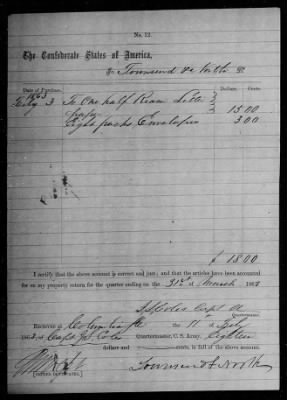 No. 12.
The Confederate States of America,
To Townsend & North Dr.
Date of Purchase. Dollars. Cents.
1863
3 To One half Ream Letter
paper 15 00
packs Envelopes 3 00
$ 18 00
I certify that the above account is correct and just; and that the articles have been accounted
for on my property return for the quarter ending on the 31st of March 186
Capt
Received at Columbia the 11 of July
186 of Capt Quartermaster, C. S. Army, Eighteen
dollars and cents, in full of the above account.
[SIGNED DUPLICATES.] Townsend & North